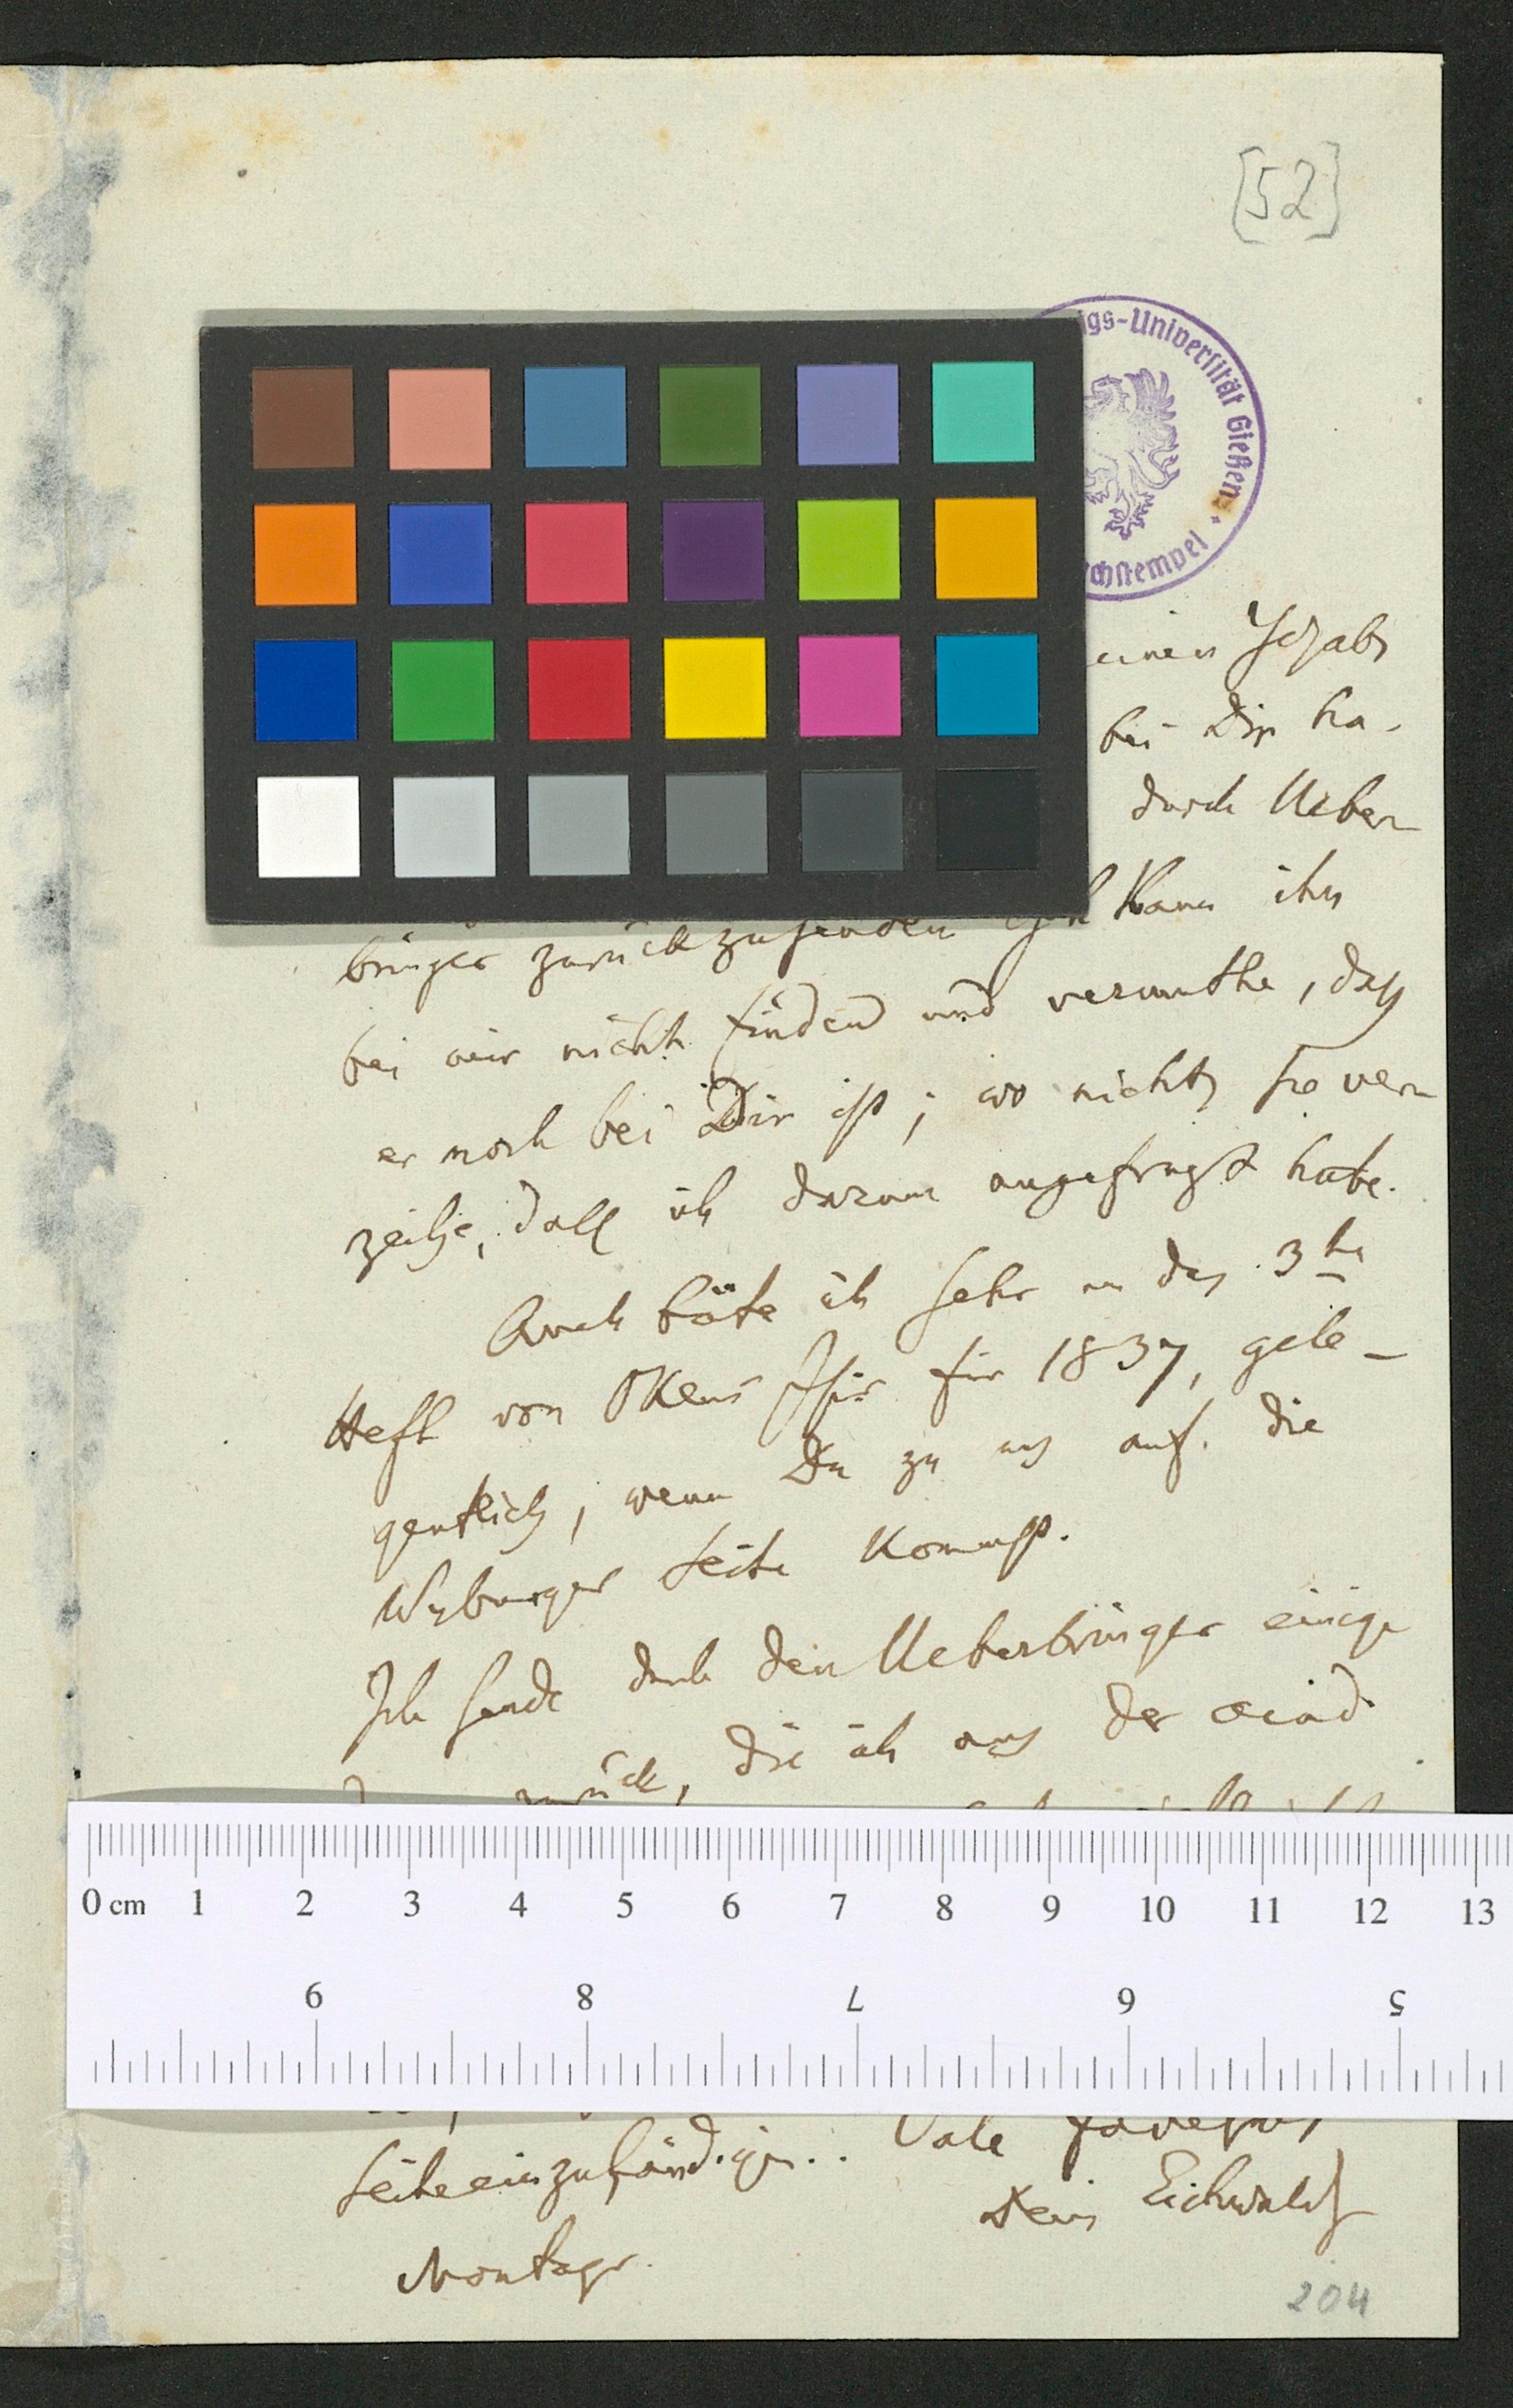 [52]
igs-Universität Gießen
chstempel
einen
bei Dir ha-
durch Ueber-
bringer zurückzusenden Ich kann ihn
bei mir nicht finden und vermuthe, daß
er noch bei Dir ist; wo nicht, so ver-
zeihe, daß ich darum angefragt habe.
Auch bäte ich sehr um das 3te
Heft von Okens Isis für 1837, gele-
gentlich, wenn Du zu uns auf die
Wyburger Seite kommst.
Ich sende durch den Ueberbringer einige
zurück, die ich aus der Acad.
0 cm 1 2 3 4 5 6 7 8 9 10 11 12 13
9 8 7 6 5
Seite einzuhändigen. Vale
Dein Eichwald
Montags.
204